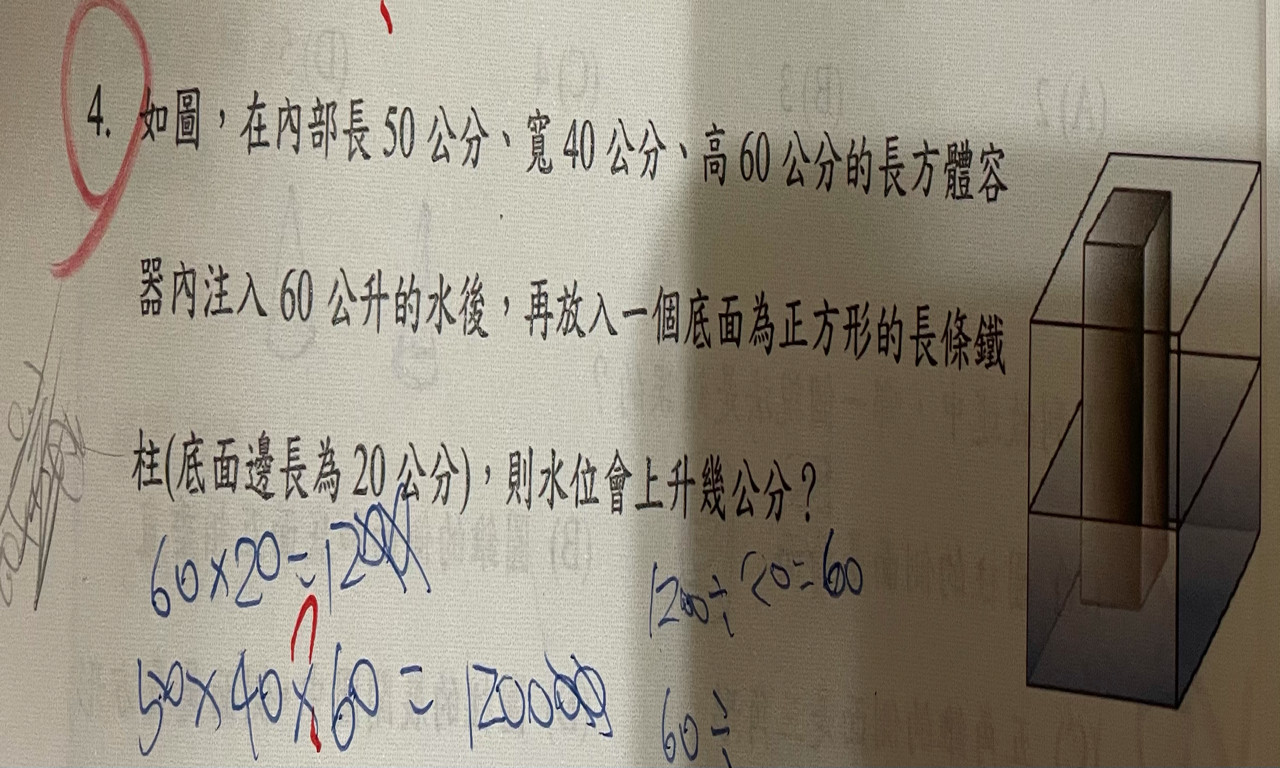 4. 如圖，在內部長 50 公分、寬 40 公分、高 60 公分的長方體容
器內注入 60 公升的水後，再放入一個底面為正方形的長條鐵
柱(底面邊長為 20 公分)，則水位會上升幾公分？
60×20=1200
1200÷20=60
50×40×60=120000
60÷